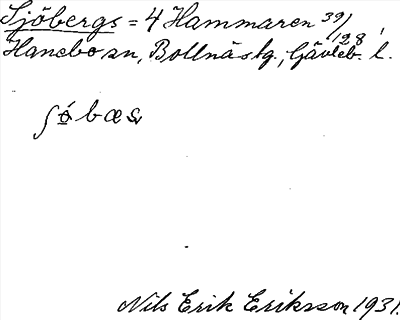 Sjöbergs = 4 Hammaren 39/128
Hanebo sn, Bollnäs tg., Gävleb. l.
Nils Erik Eriksson 1931.